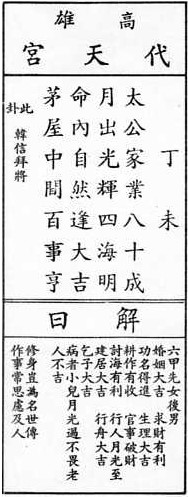 高雄
代天宮
丁未
太公家業八十成
月出光輝四海明
命內自然逢大吉
茅屋中間百事亨
此卦
韓信拜將
解曰
六甲先女後男
婚姻大吉 求財有利
功名得進 生理大吉
耕作有收 官事破財
討海有利 行人月光至
建居大吉 行舟大吉
乞子大吉
病者小兒月光過不畏老
人不吉
修身豈為名世傳
作事常思處及人